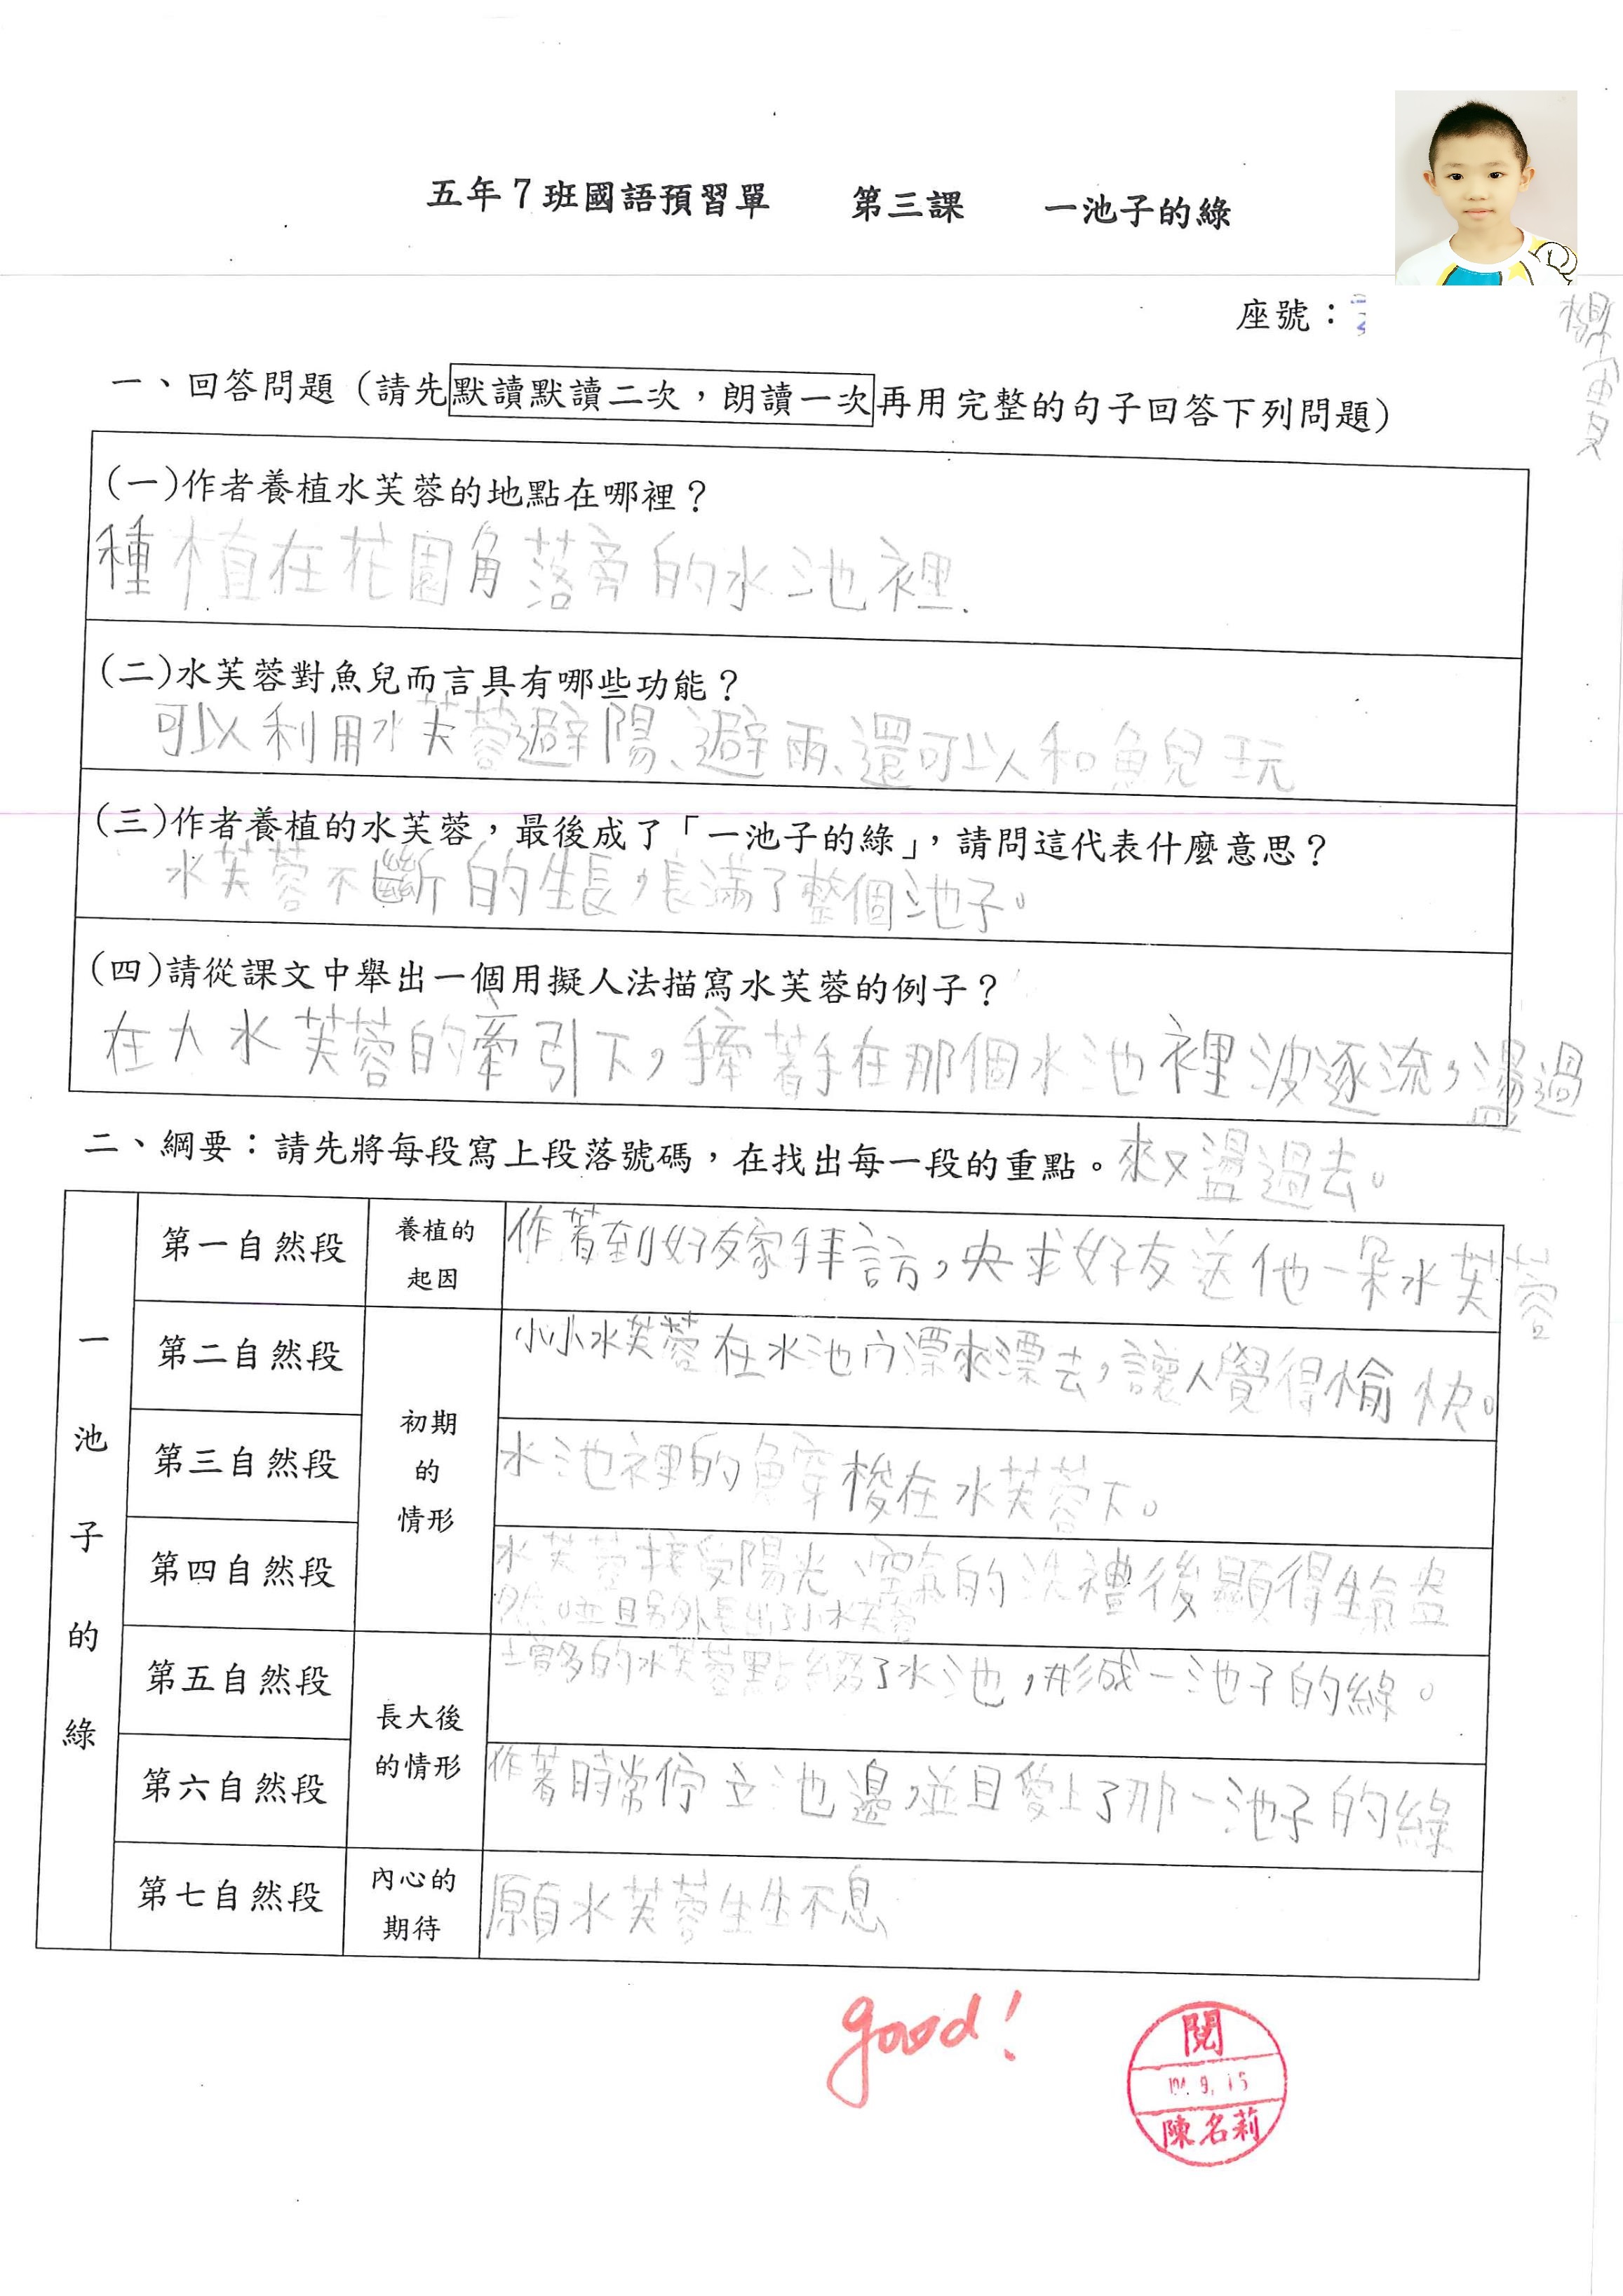 五年7班國語預習單 第三課 一池子的綠
座號：
楊
一、回答問題（請先默讀默讀二次，朗讀一次再用完整的句子回答下列問題）
(一)作者養植水芙蓉的地點在哪裡？
種植在花園角落旁的水池裡.
(二)水芙蓉對魚兒而言具有哪些功能？
可以利用水芙蓉避陽、避雨、還可以和魚兒玩
(三)作者養植的水芙蓉，最後成了「一池子的綠」，請問這代表什麼意思？
水芙蓉不斷的生長，長滿了整個池子。
(四)請從課文中舉出一個用擬人法描寫水芙蓉的例子？
在大水芙蓉的牽引下，牽著手在那個水池裡波逐流，盪過
來又盪過去。
二、綱要：請先將每段寫上段落號碼，在找出每一段的重點。
一池子的綠
第一自然段 養植的起因 作者到好友家拜訪，央求好友送他一朵水芙蓉
第二自然段 初期的情形 小小水芙蓉在水池內漂來漂去，讓人覺得愉快。
第三自然段 水池裡的魚穿梭在水芙蓉下。
第四自然段 水芙蓉接受陽光、空氣的洗禮後顯得生氣盎
然。並且另外長出了小水芙蓉
第五自然段 長大後的情形 增多的水芙蓉點綴了水池，形成一池子的綠。
第六自然段 作者時常佇立池邊，並且愛上了那一池子的綠
第七自然段 內心的期待 願水芙蓉生生不息
good!
閱
9.15
陳名莉